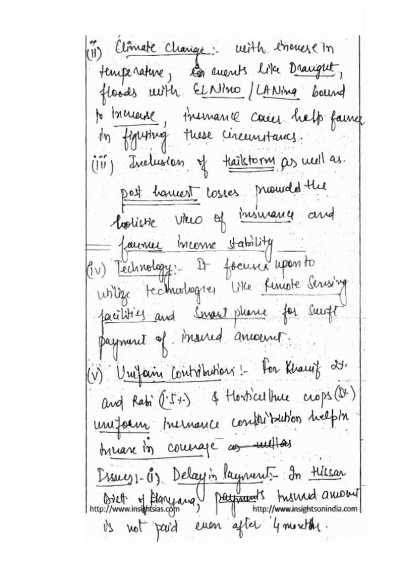 (ii) Climate Change :- with increase in
temperature, events like Draught,
floods with ELNino / LANina bound
to increase, insurance cover help farmer
in fighting these circumstances.
(iii) Inclusion of Hailstorm as well as
post harvest losses provide the
holistic view of insurance and
farmer income stability
(iv) Technology:- It focuses upon to
utilize technologies like Remote Sensing
facilities and Smart phone for swift
payment of insured amount.
(v) Uniform Contribution :- For Kharif 2%
and Rabi (1.5%) & Horticulture crops (5%)
uniform insurance contribution help in
increase in coverage as well as
Issues :- (i) Delay in Payment:- In Hissar
Distt of Haryana, payments insured amount
http://www.insightsias.com http://www.insightsonindia.com
is not paid even after 4 months.